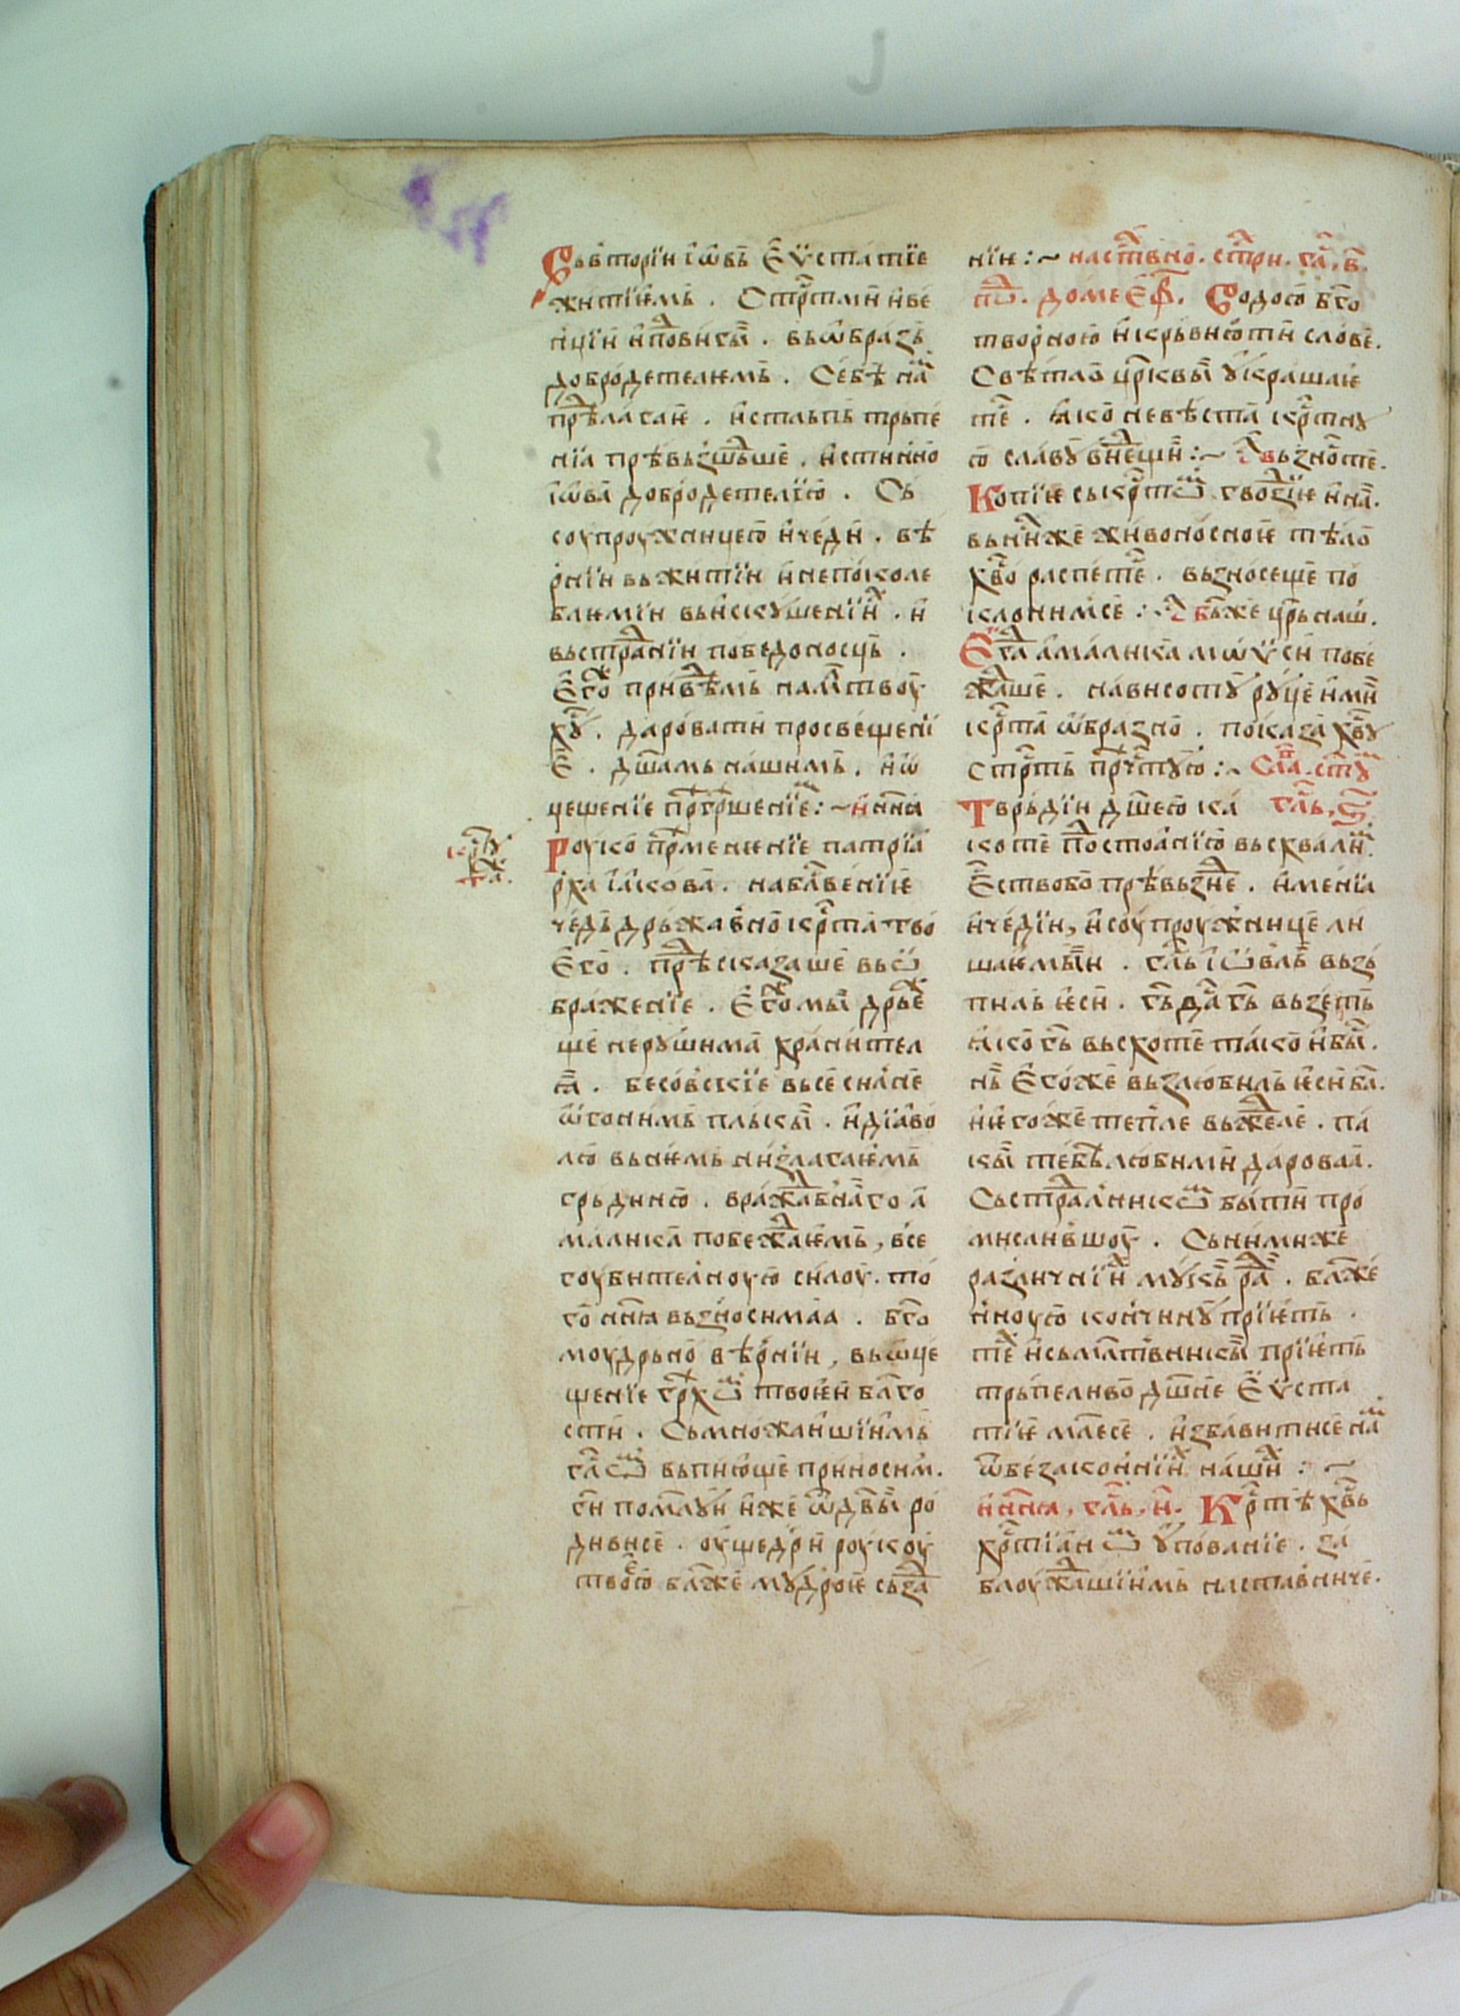 Съвторїи їѡвь Еѵстатїе
житїемь. Стрⷭ҇тми и бе
нцїи иповигы. вьѡбразь
добродетелемь. Себѣ наⷨ
прⷣѣлагае. истльпь трьпе
нїа прѣвьзшⷣьше. истинно
їѡва добродетелїю. Сь
соупроужницею ичеди. вѣ
рнїи вьжитїи инепоколе
блимїи вьискꙋшенїиⷯ. и
вьстрⷣанїи победоносць.
Егоⷤ привⷣѣмь намлтвоу
хꙋ. даровати просвещенї
е. дш҃амь нашимь. иѡ
цещенїе прⷢ҇ѣрⷯшенїеⷨ:~ инн҃ꙗ
Роукоⷨ прⷨѣменен҇їе патрїа
рха їꙗкова. наблⷭ҇венїе
чедь дрьжавно крⷭ҇та тво
его. прⷣѣсказаше вьѡ
браженїе. Егоⷤ мы дрьⷤе
ще нерꙋшима хранител
ꙗ. бесовскїе вьсе силне
ѿгонимь пльки. идїаво
лю вьнемь низлагаемь
грьдиню. вражⷣавнаго а
малика побежⷣаемь, все
гоубителноую силоу. то
го нн҃ꙗ вьзносимаа. бг҃о
моудрьно вѣрнїи, вьѡце
щенїе грⷯѣхѡⷨ твоеи блг҃о
сти. Сьмножаишїимь
глⷭ҇ѡⷨ вьпиюще приносим.
ги помлⷭ҇уи иже ѿдв҃ы ро
дивисе. оущедри роукоу
твоею блⷤ҇е мꙋдрое сьзⷣа
нїи:~ настⷯвно. стрⷯи. глⷭ҇. в҃.
пⷣѡ. доме Еф. Еодосю бг҃о
творною икрьвнюти слове.
Свѣтло црⷪ҇квы ꙋкрашае
тⷭ҇е. ꙗко невѣста крⷭ҇тнꙋ
ю славꙋ внⷣеши:~ Вьзносⷣте.
Копїе ськрⷭ҇тѡⷨ гвозⷣїе инаⷨ.
вьнⷯиже живоносное тѣло
хв҃о распетⷭ҇е. вьзносеще по
клонимсе:~ Дн҃ьже црⷭ҇ь наш.
Егⷣа амалика мѡѵси побе
жⷣаше. нависотꙋ рꙋце имⷤи
крⷭ҇та ѡбразно. показа хв҃ꙋ
стрⷭ҇ть прⷱ҇тꙋю:~ Слⷡ҇а. ст҃ꙋ
Тврьдїи дш҃ею ка глⷭ҇ь, ѕ҃.
коте Подⷣстоанїю вьсхвалиⷨ.
Ествобо прѣвьзиⷣе. именїа
ичедїи, исоупроужнице ли
шаемыи. глⷭ҇ь їѡвль вьзь
пиль еси. гь дⷭ҇а гь вьзеть
ꙗко гь вьсхоте тако ибы.
нь Егоже вьзлюбиль еси бл.
иегоже тепле вьжⷣеле. па
кы тебѣлюбими дарова.
Сьстрⷣалникѡⷨ быти про
мислившоу. Сьнимиже
различнїиⷯ мꙋкь рⷣа. блⷤ҇е
нноую кончинꙋ прїеть.
тⷯѣ исьмлтⷡ҇никы прїеть
трьпеливо дш҃не Еѵста
тїе млⷭ҇есе. избавитисе наⷨ
ѿбезаконнїиⷯ нашиⷯ:~
инн҃ꙗ, глⷭ҇ь, и҃. Крⷭ҇тѣ хв҃ь
хрⷭ҇тїанѡⷨ ꙋпованїе. за
блоужⷣашїимь наставниче.